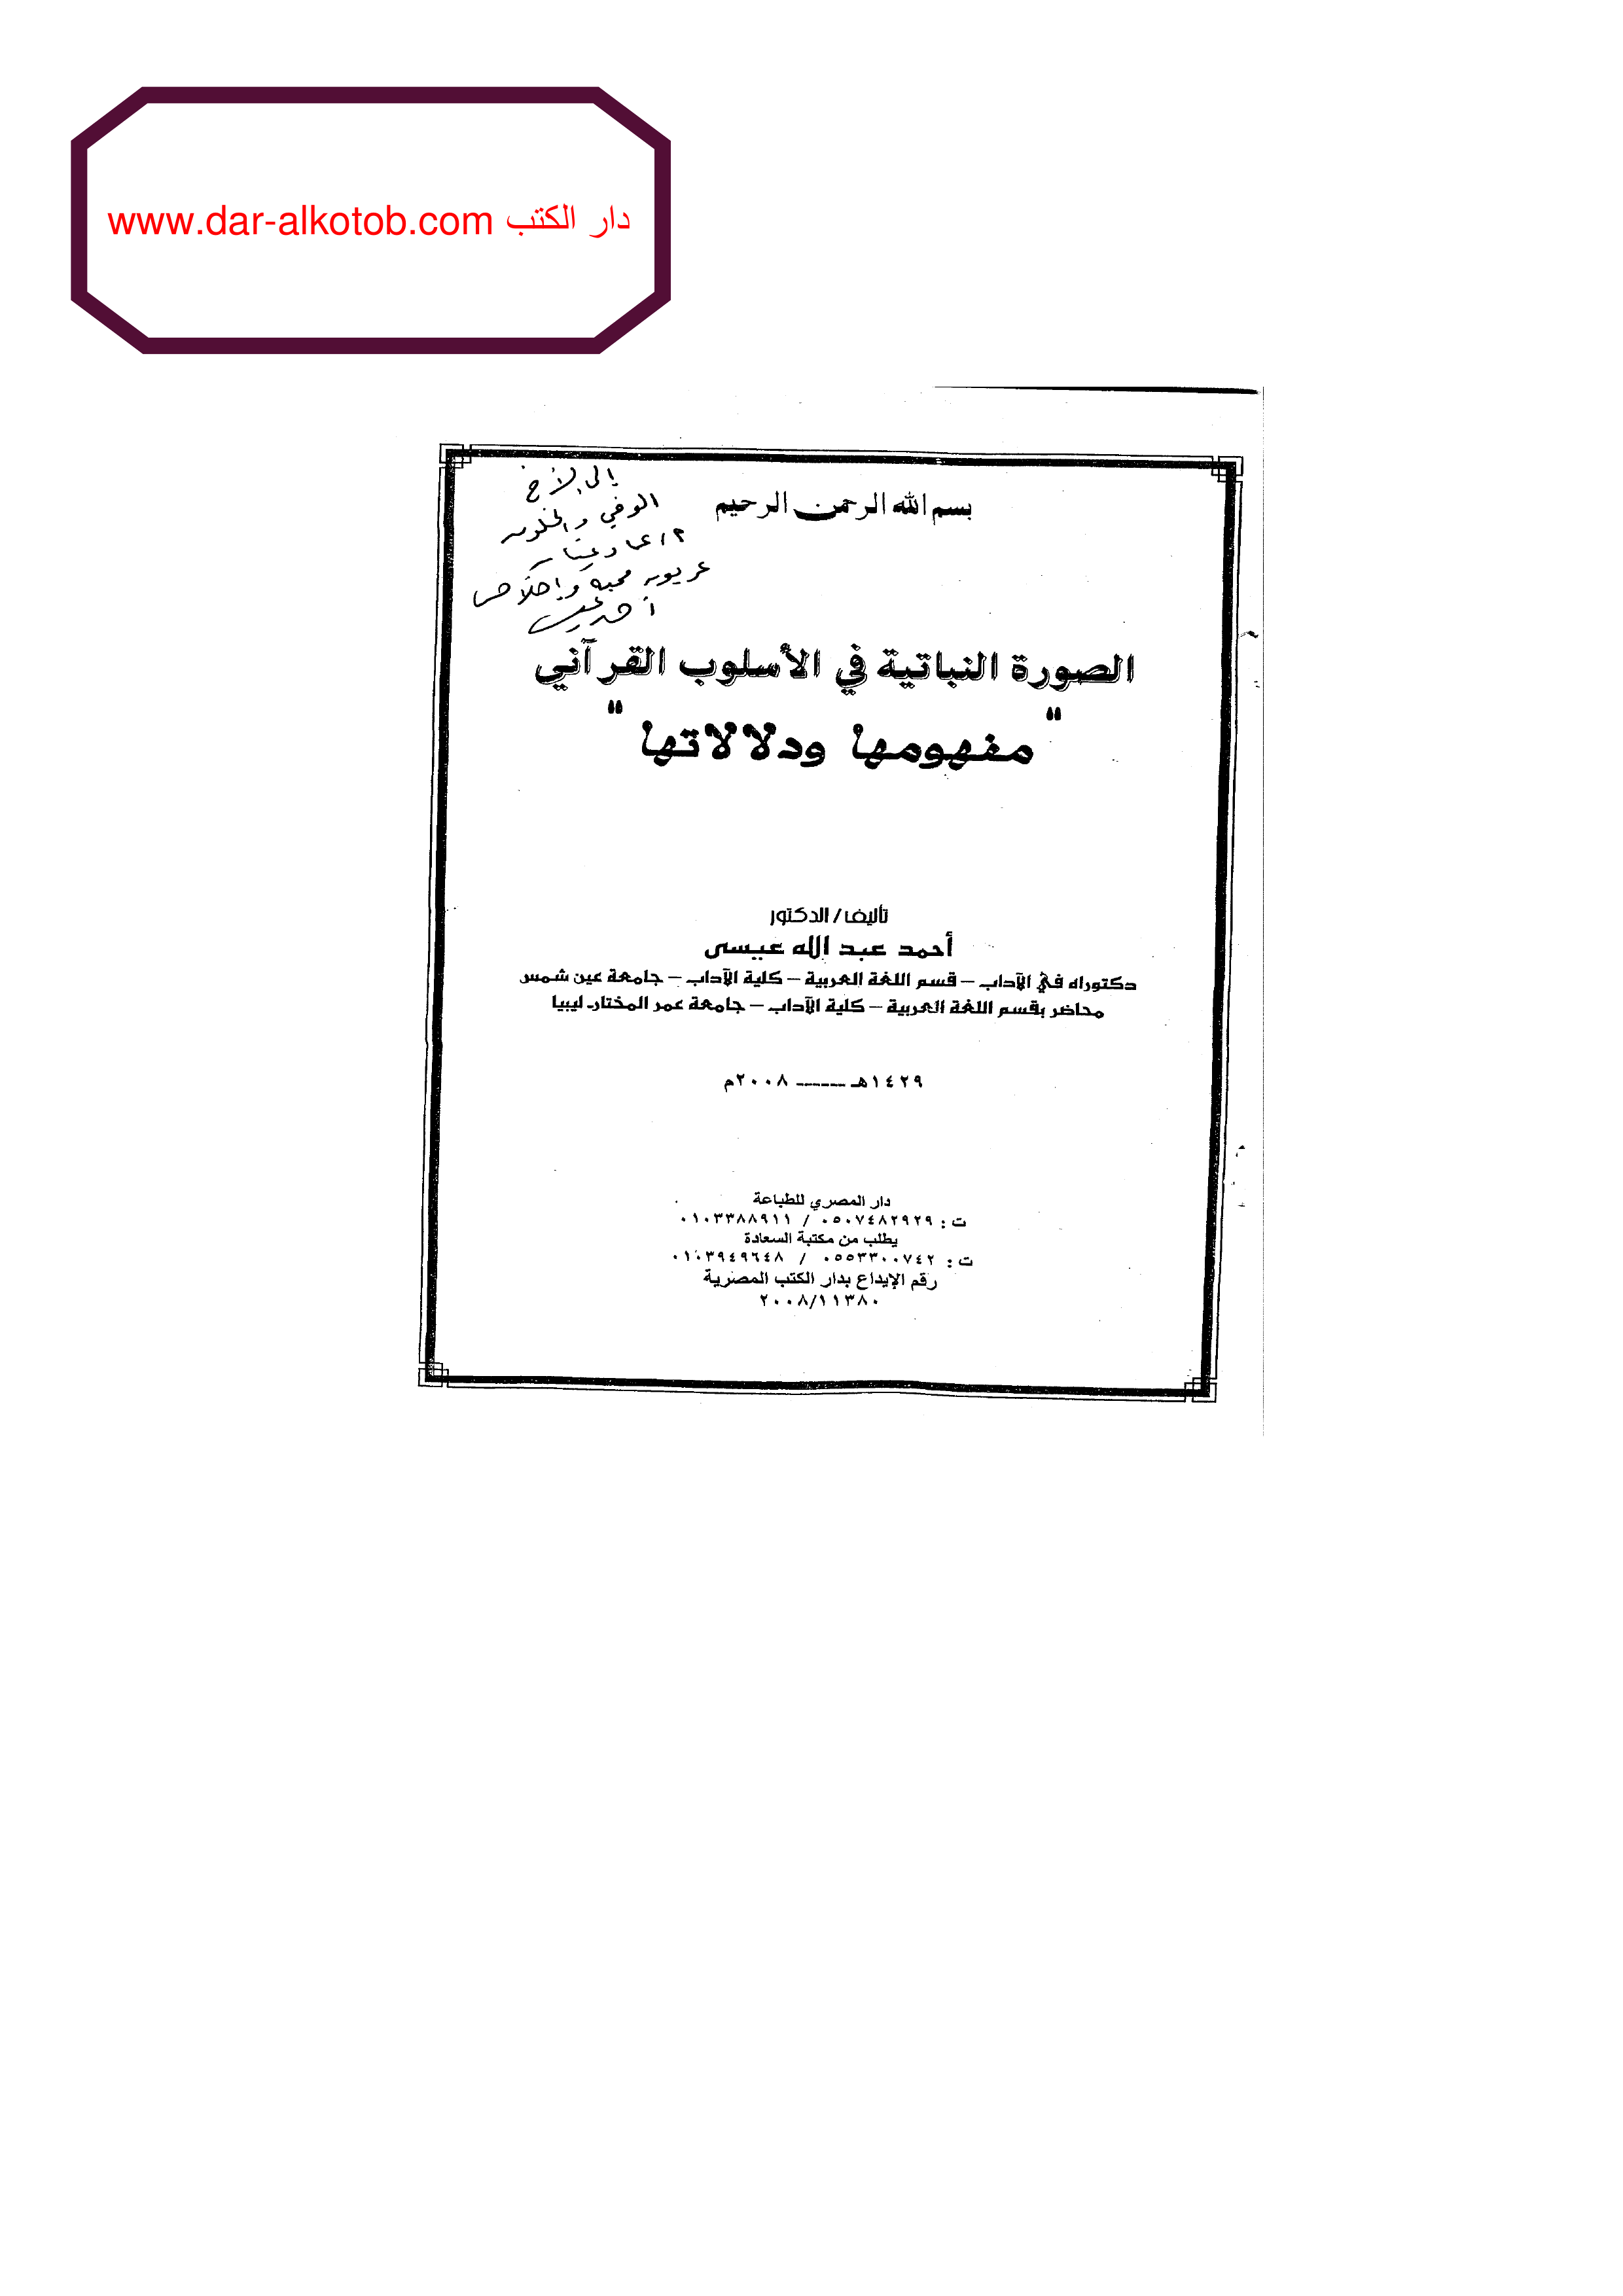 دار الكتب www.dar-alkotob.com
بسم الله الرحمن الرحيم
إلى الأخ
الوفي والخلوق
عربون محبة وإخلاص
الصورة النباتية في الأسلوب القرآني
"مفهومها ودلالاتها"
تأليف/الدكتور
أحمد عبد الله عيسى
دكتوراه في الآداب – قسم اللغة العربية – كلية الآداب – جامعة عين شمس
محاضر بقسم اللغة العربية – كلية الآداب – جامعة عمر المختار- ليبيا
١٤٢٩هـ ــــــ ٢٠٠٨م
دار المصري للطباعة
ت : ٠٥٠٧٤٨٢٩٢٩ / ٠١٠٣٣٨٨٩١١
يطلب من مكتبة السعادة
ت : ٠٥٥٣٣٠٠٧٤٢ / ٠١٠٣٩٤٩٦٤٨
رقم الإيداع بدار الكتب المصرية
٢٠٠٨/١١٣٨٠